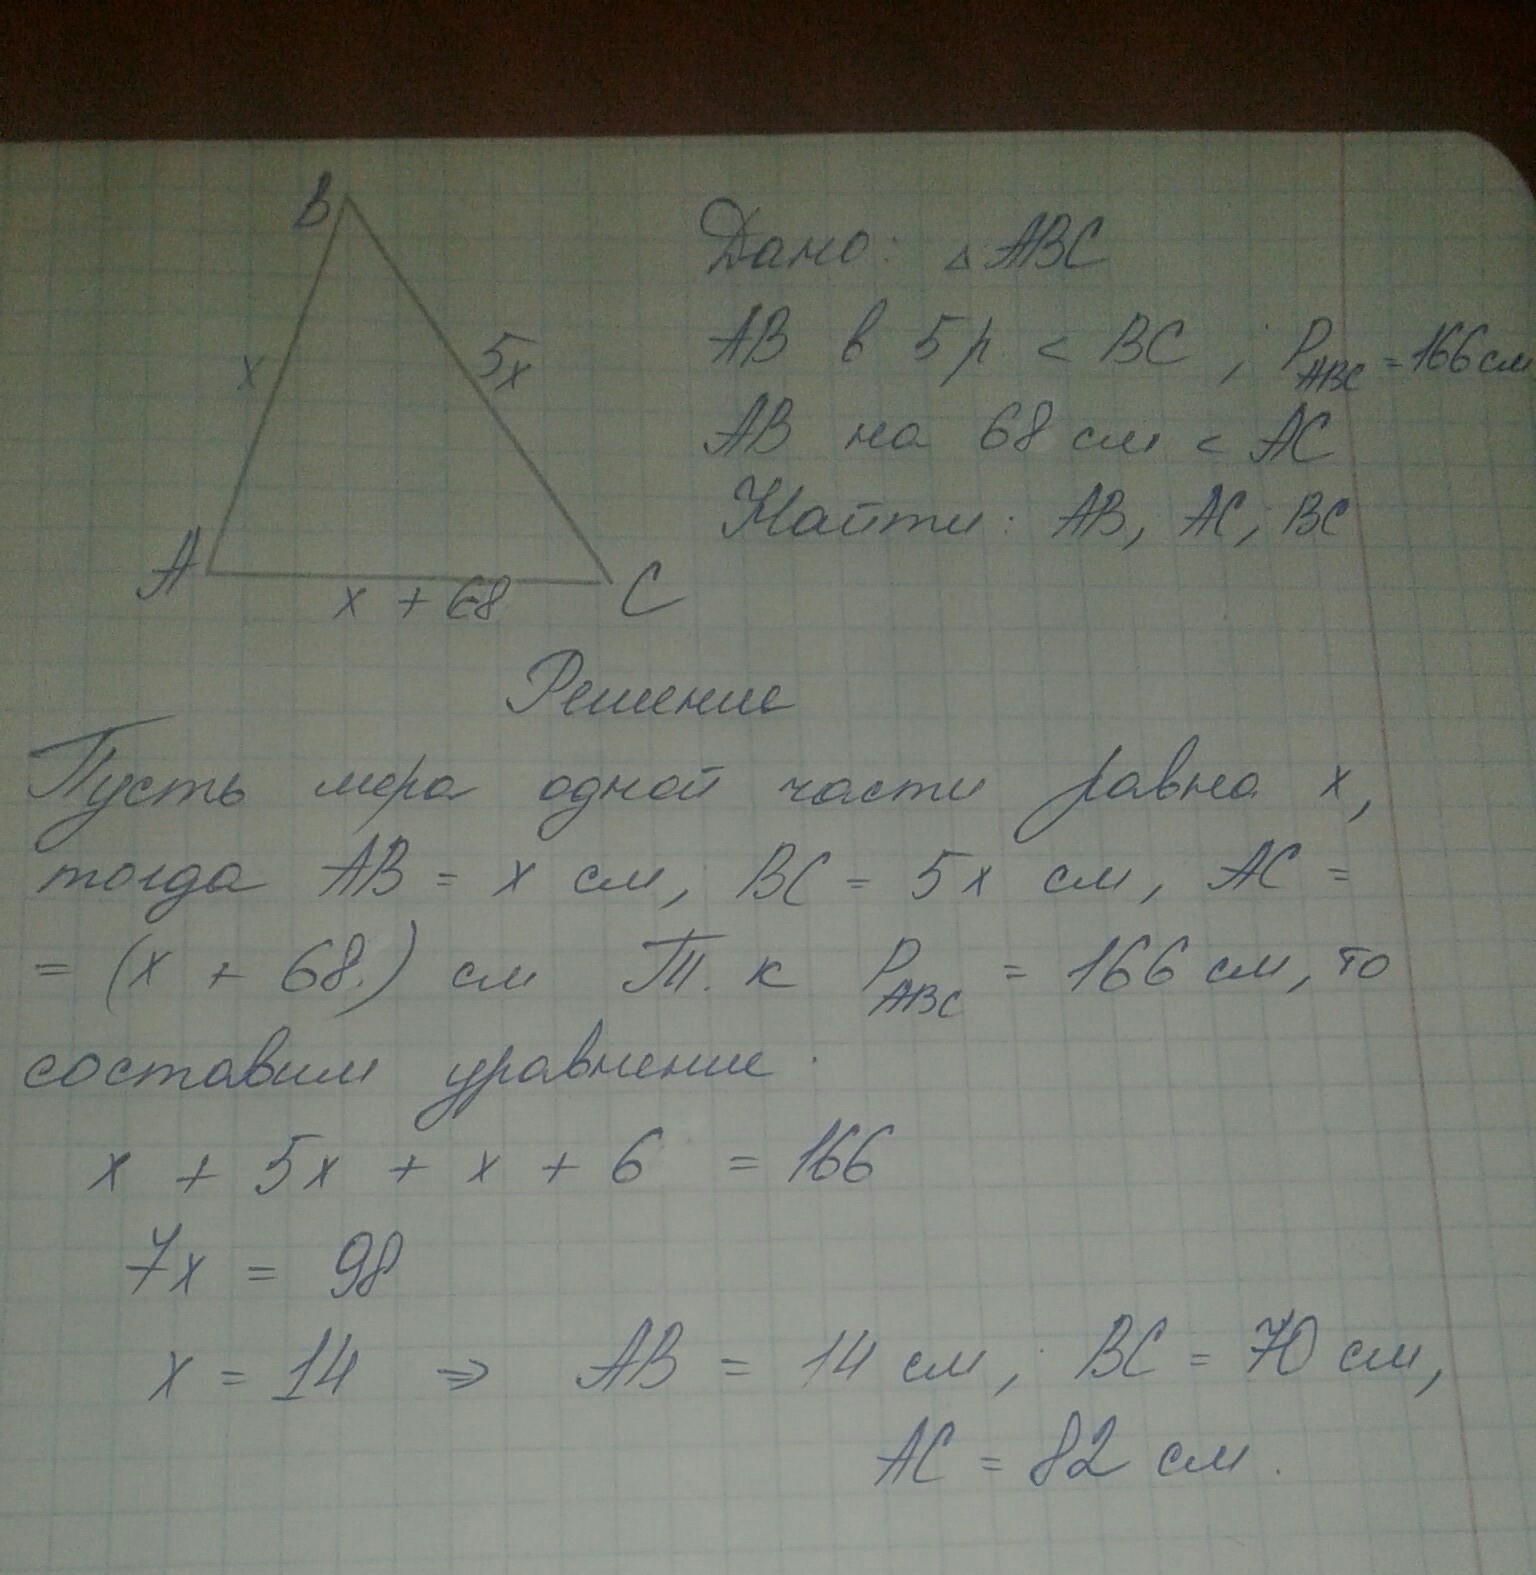 B
Дано: △ABC
x
5x
AB в 5 р. < BC ; P ABC = 166 см
AB на 68 см < AC
Найти: AB, AC, BC
A
x + 68
C
Решение
Пусть мера одной части равна x,
тогда AB = x см, BC = 5x см, AC =
= (x + 68) см Т. к P ABC = 166 см, то
составим уравнение:
x + 5x + x + 6 = 166
7x = 98
x = 14 ⇒ AB = 14 см, BC = 70 см,
AC = 82 см.